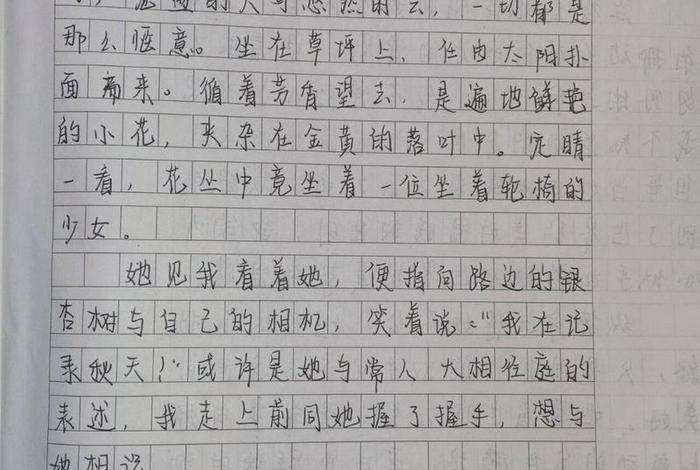 的人与悠然的云，一切都是
那么惬意。坐在草坪上，任由太阳扑
面而来。循着芳香望去，是遍地鲜艳
的小花，夹杂在金黄的落叶中。定睛
一看，花丛中竟坐着一位坐着轮椅的
少女。
她见我看着她，便指向路边的银
杏树与自己的相机，笑着说：“我在记
录秋天！”或许是她与常人大相径庭的
表述，我走上前同她握了握手，想与
她相识